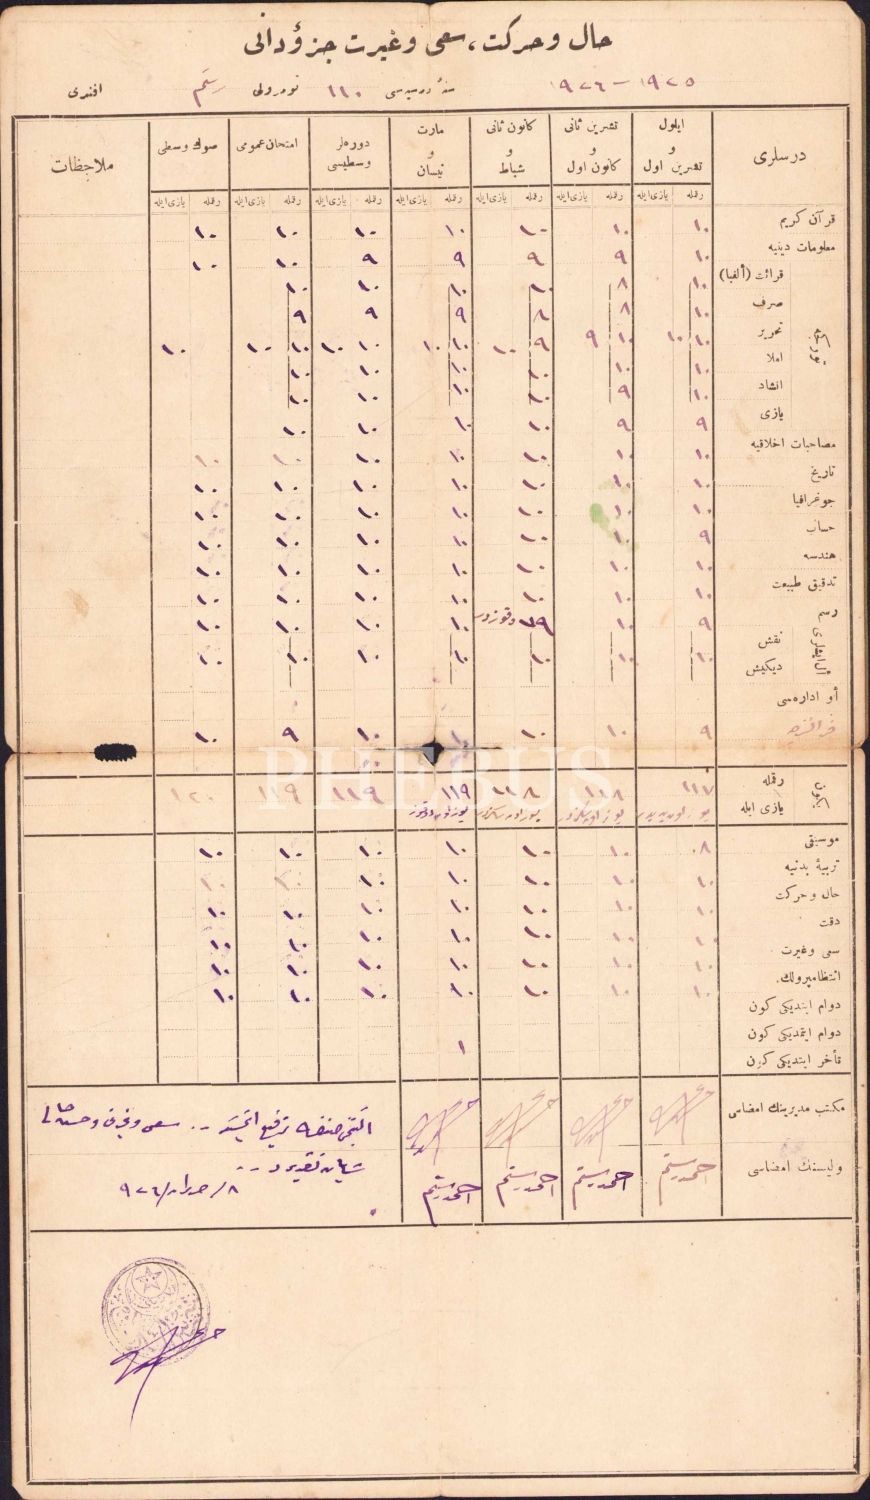 حال و حركت ، سعی و غيرت جزؤدانی
١٩٢٥ – ١٩٢٦ سنهٔ درسيه‌سی ١١٠ نومرولی رستم افندی
درسلری
ايلول و تشرين اول
تشرين ثانی و كانون اول
كانون ثانی و شباط
مارت و نيسان
دوره‌لر وسطيسی
امتحان عمومی
صوك وسطی
ملاحظات
رقمله يازی ايله رقمله يازی ايله رقمله يازی ايله رقمله يازی ايله رقمله يازی ايله رقمله يازی ايله رقمله يازی ايله
قرآن كريم ١٠ ١٠ ١٠ ١٠ ١٠ ١٠ ١٠
معلومات دينيه ١٠ ٩ ٩ ٩ ٩ ١٠ ١٠
قرائت (ألفبا) ١٠ ٨ ١٠ ١٠ ١٠ ١٠
صرف ١٠ ٨ ٨ ٩ ٩ ٩
تحرير ١٠ ١٠ ١٠ ٩ ٩ ١٠ ١٠ ١٠ ١٠ ١٠ ١٠ ١٠ ١٠
املا ١٠ ١٠ ١٠ ١٠ ١٠
انشاد ١٠ ٩ ١٠ ١٠ ١٠ ١٠
يازی ٩ ٩ ١٠ ١٠ ١٠ ١٠
مصاحبات اخلاقيه ١٠ ١٠ ١٠ ١٠ ١٠ ١٠ ١٠
تاريخ ١٠ ١٠ ١٠ ١٠ ١٠ ١٠ ١٠
جوغرافيا ١٠ ١٠ ١٠ ١٠ ١٠ ١٠ ١٠
حساب ٩ ١٠ ١٠ ١٠ ١٠ ١٠ ١٠
هندسه ١٠ ١٠ ١٠ ١٠ ١٠ ١٠ ١٠
تدقيق طبيعت ١٠ ١٠ ١٠ ١٠ ١٠ ١٠ ١٠
رسم ٩ ١٠ ٩ ١٠ ١٠ ١٠ ١٠
ال ايشلری
نقش
ديكيش ١٠ ١٠ ١٠ ١٠ ١٠ ١٠ ١٠
أو اداره‌سی
٩ ١٠ ١٠ ١٠ ١٠ ٩ ١٠
PHEBUS
يكون
رقمله ١١٧ ١١٨ ١١٨ ١١٩ ١١٩ ١١٩ ١٢٠
يازی ايله يوز اون يدی يوز اون سكز يوز اون سكز يوز اون طقوز
موسيقی ٨ ١٠ ١٠ ١٠ ١٠ ١٠ ١٠
تربيهٔ بدنيه ١٠ ١٠ ١٠ ١٠ ١٠ ١٠ ١٠
حال و حركت ١٠ ١٠ ١٠ ١٠ ١٠ ١٠ ١٠
دقت ١٠ ١٠ ١٠ ١٠ ١٠ ١٠ ١٠
سعی و غيرت ١٠ ١٠ ١٠ ١٠ ١٠ ١٠ ١٠
انتظامپرولك ١٠ ١٠ ١٠ ١٠ ١٠ ١٠ ١٠
دوام ايتديكی كون
دوام ايتمديكی كون
تأخر ايتديكی كون ١
مكتب مديرينك امضاسی
وليسنك امضاسی احمد رستم احمد رستم احمد رستم احمد رستم
شايان تقديردر
٨/حزيران/٩٢٦